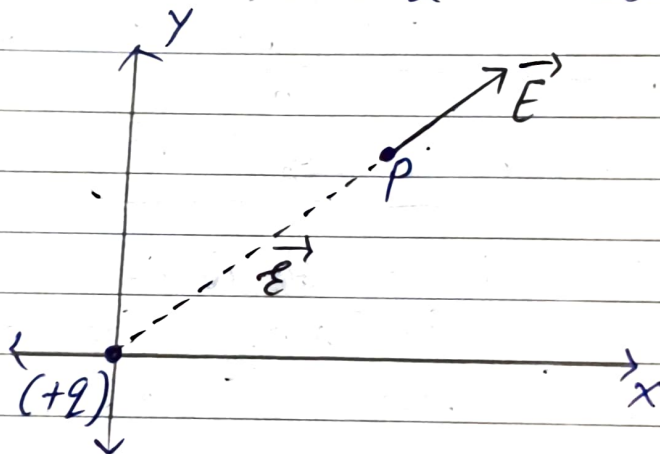 Y
E
P
r
(+q)
X